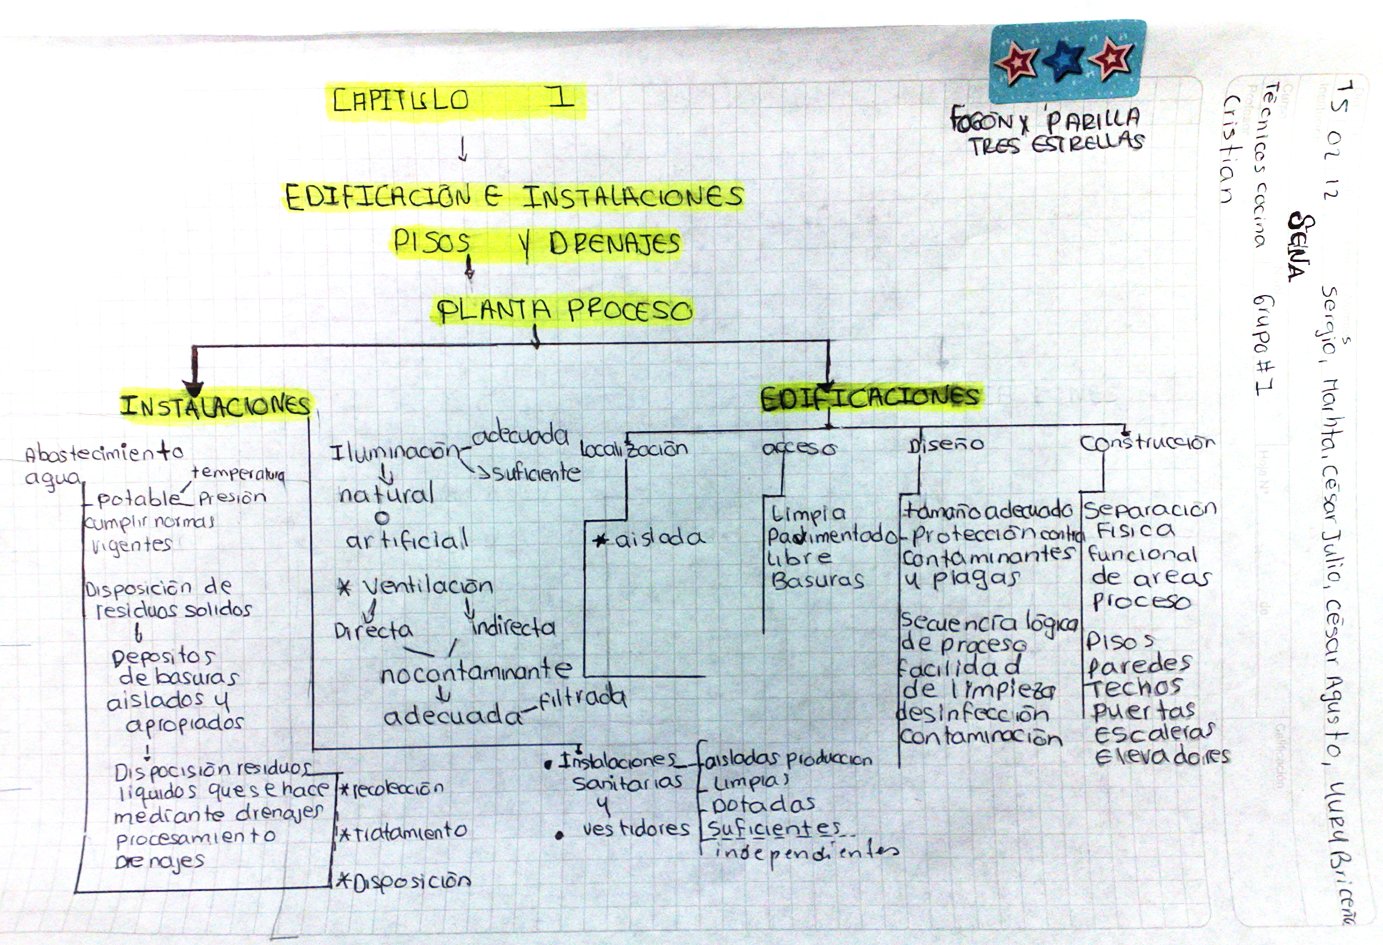 CAPITULO 1
EDIFICACIÓN E INSTALACIONES
PISOS Y DRENAJES
PLANTA PROCESO
FOGÓN Y PARILLA
TRES ESTRELLAS
INSTALACIONES
Abastecimiento
agua
temperatura
potable Presión
cumplir normas
vigentes
Disposición de
residuos solidos
Depositos
de basuras
aislados y
apropiados
Dispocisión residuos
liquidos que se hace
mediante drenajes
procesamiento
Drenajes
*recolección
*tratamiento
*Disposición
Iluminación adecuada
suficiente
natural
o
artificial
* Ventilación
Directa indirecta
no contaminante
adecuada filtrada
Instalaciones
sanitarias
y
vestidores
aisladas producción
Limpias
Dotadas
suficientes
independientes
EDIFICACIONES
localización
*aislada
acceso
Limpia
Pavimentado
Libre
Basuras
Diseño
tamaño adecuado
Protección contra
contaminantes
y plagas
secuencia lógica
de proceso
facilidad
de limpieza
desinfección
contaminación
construcción
separación
Física
funcional
de areas
proceso
Pisos
paredes
Techos
puertas
escaleras
Elevadores
15 02 12 Sergio, Marhta, César Julio, César Agusto, Yury Briceñe
s
SENA
Técnicos cocina Grupo #1
Cristian